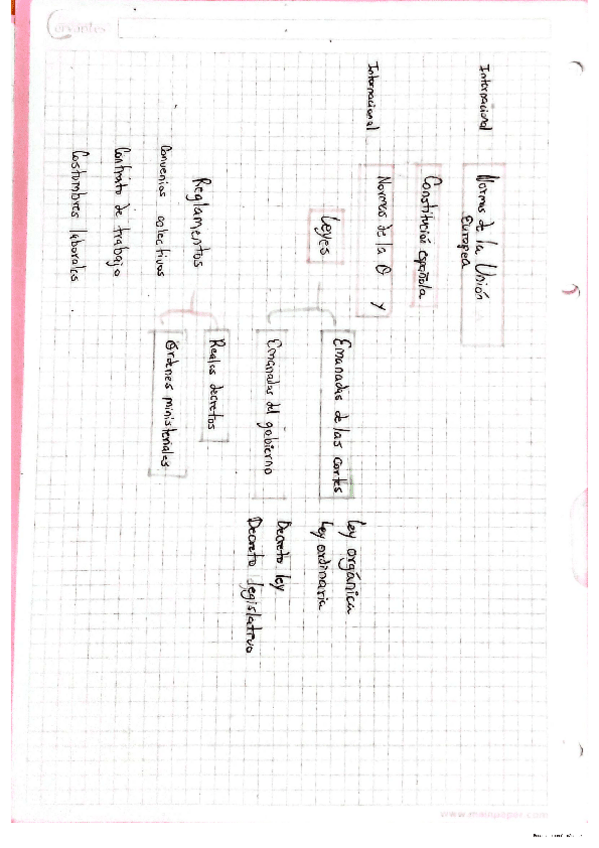 Internacional
Normas de la Unión
Europea
Constitución española
Internacional
Normas de la O y
Leyes
Emanadas de las cortes
Ley orgánica
Ley ordinaria
Emanadas del gobierno
Decreto ley
Decreto legislativo
Reglamentos
Reales decretos
Órdenes ministeriales
Convenios colectivos
Contrato de trabajo
Costumbres laborales
www.mainpaper.com